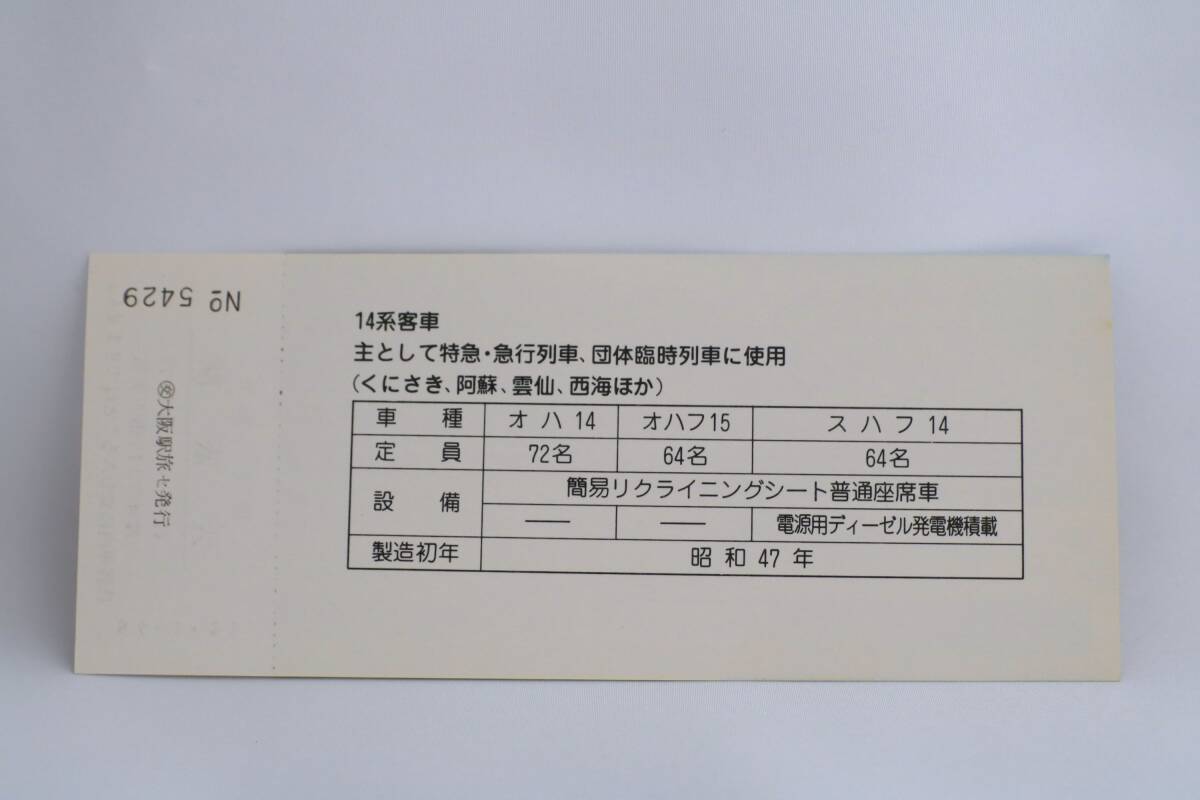 № 5429
大阪駅旅セ発行
14系客車
主として特急・急行列車、団体臨時列車に使用
(くにさき、阿蘇、雲仙、西海ほか)
車種 オハ14 オハフ15 スハフ14
定員 72名 64名 64名
設備 簡易リクライニングシート普通座席車
— — 電源用ディーゼル発電機積載
製造初年 昭和47年